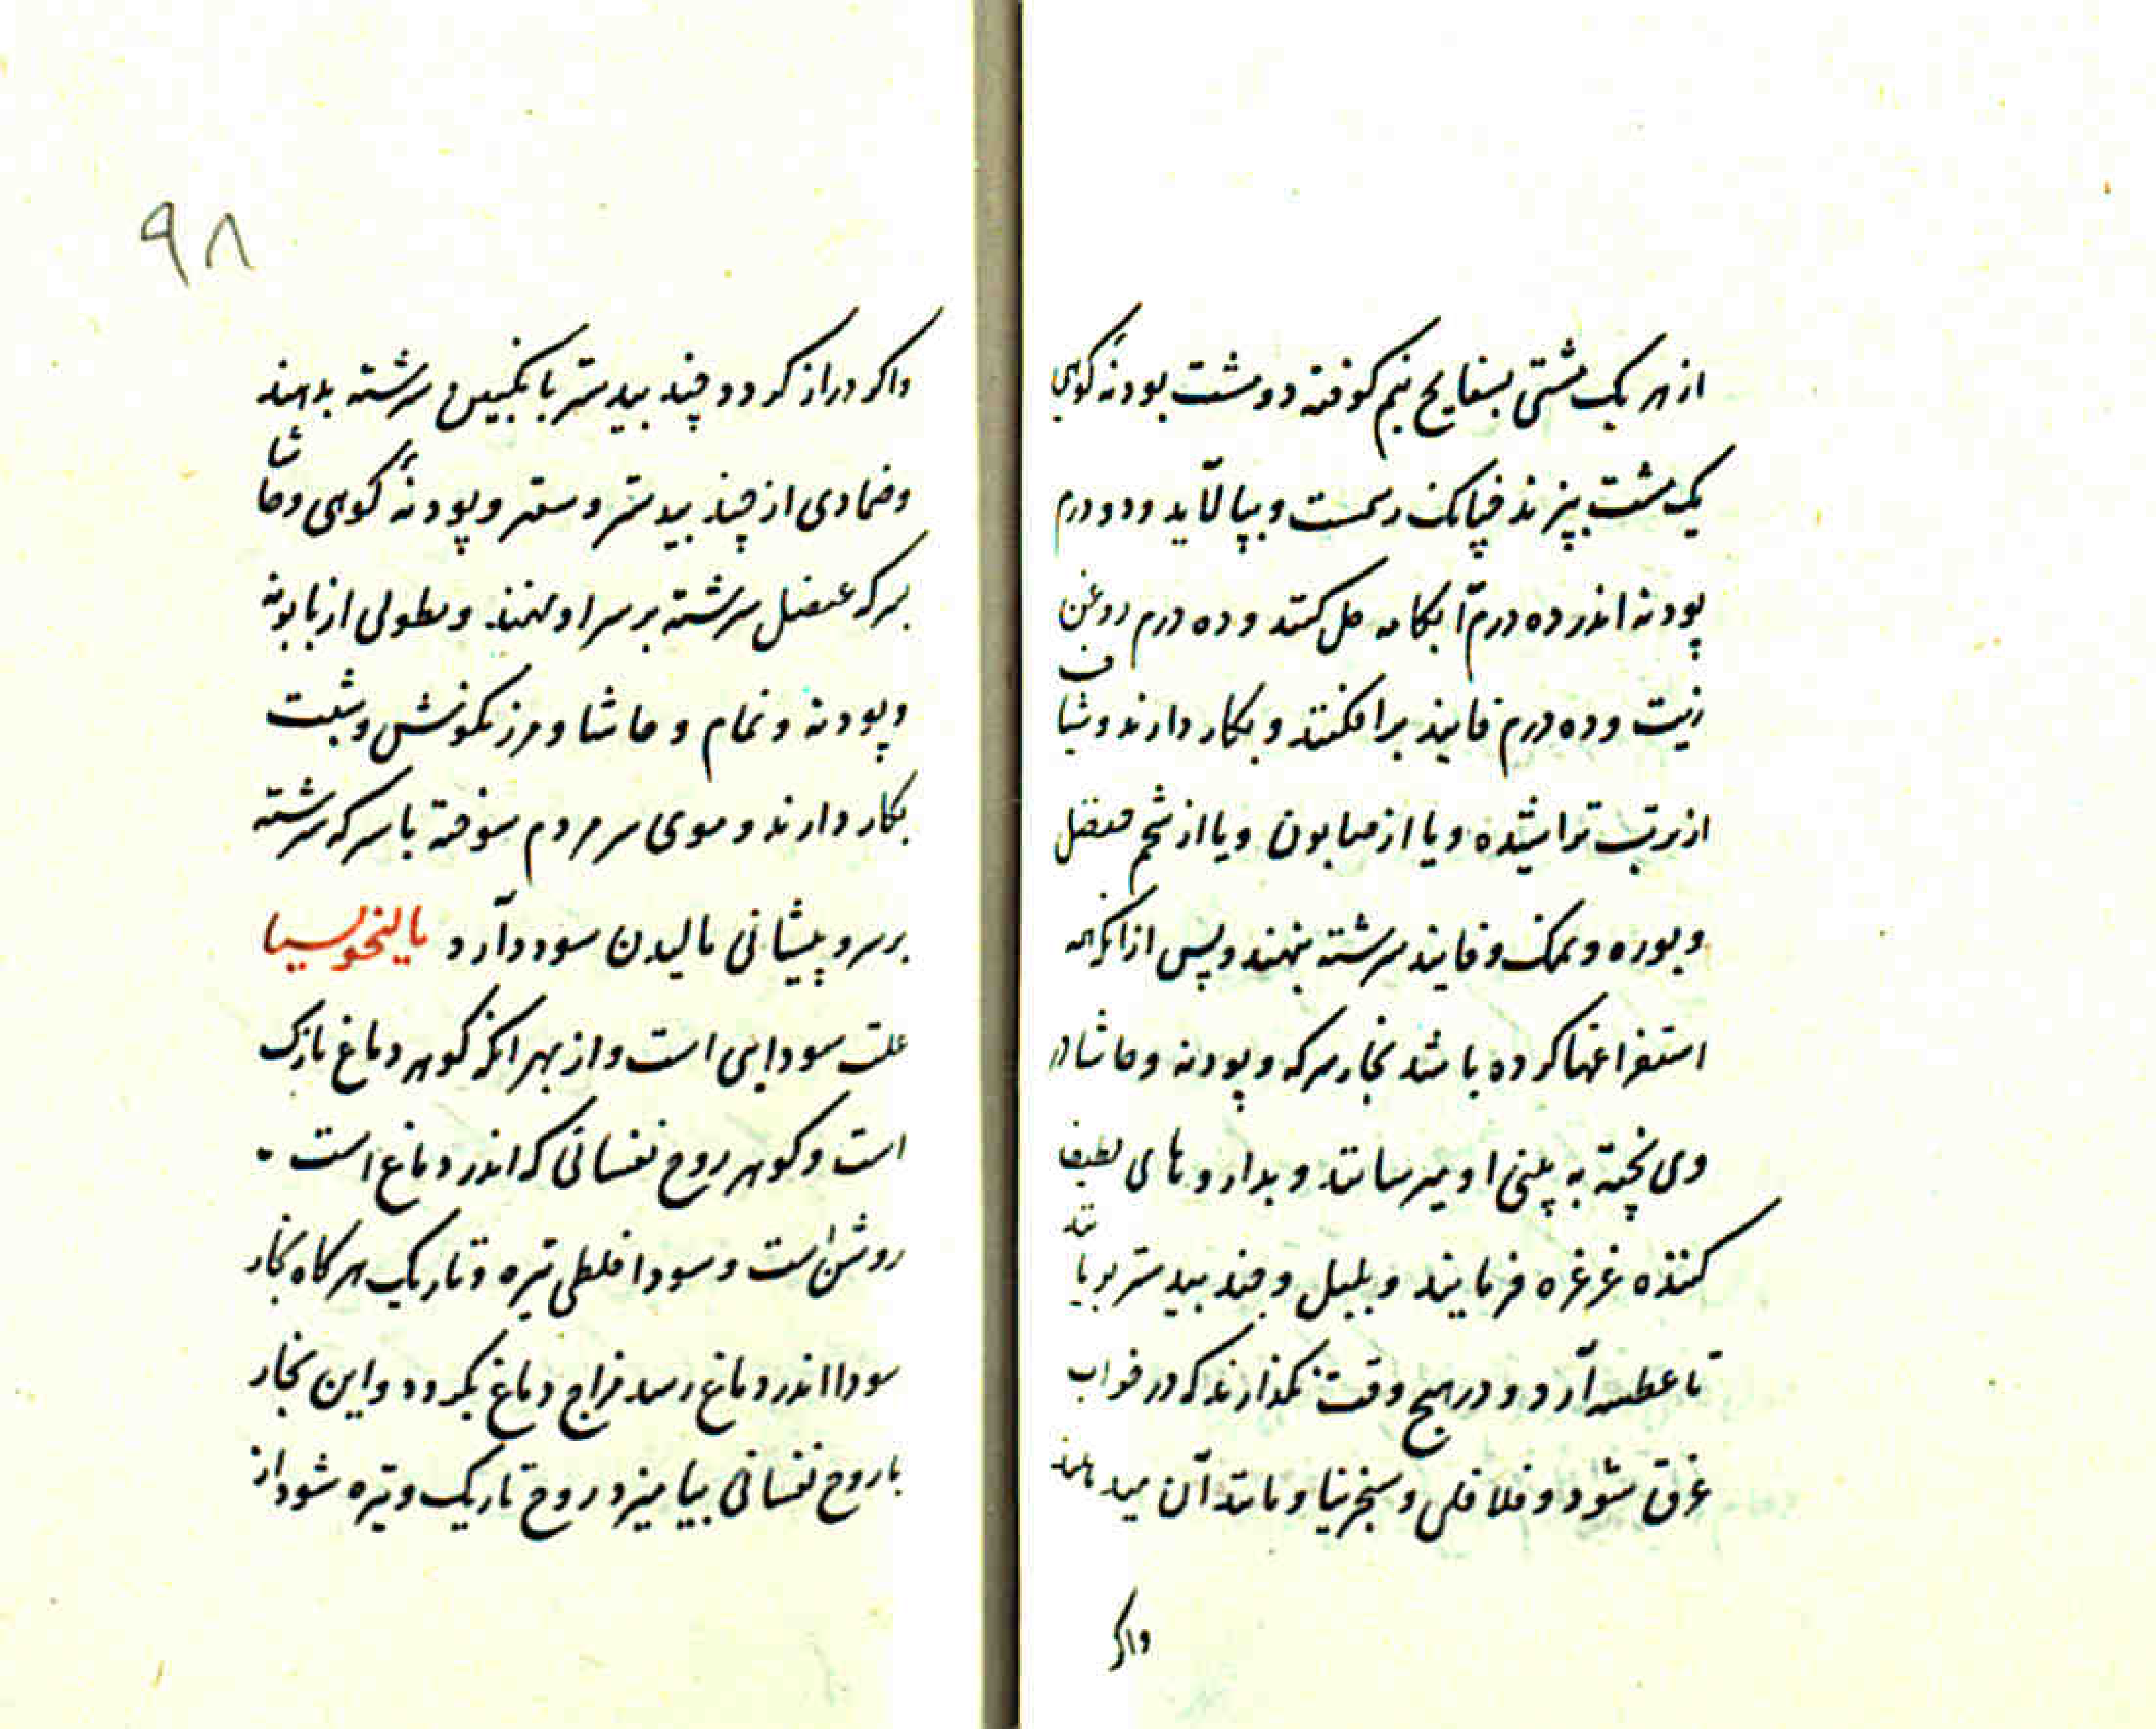 از هر یک مشتی بسفایج نیم کوفته دو مشت بودنهٔ کوهی
یک مشت بپزند چنانک رسمست و بپالاید و دو درم
پودنه اندر ده درم آبکامه حل کنند و ده درم روغن
زیت و ده درم فانیذ برافکنند و بکار دارند و شیاف
از ترب تراشیده و یا از صابون و یا از شحم حنضل
و بوره و نمک و فانیذ سرشته بنهند و پس از انکه
استفراغها کرده باشد بخار سرکه و پودنه و حاشا در
وی پخته به بینی او میرسانند و بداروهای لطیف
کننده غرغره فرمایند و بلبل و جند بیدستر بویانند
تا عطسه آرد و در هیچ وقت نکذارند که در خواب
غرق شود و فلافلی و سنجرنیا و مانند آن میدهند
واکر
۹۸
واکر دراز کردد چند بیدستر بانکبین سرشته بدهند
و ضمادی از چند بیدستر و سعتر و پودنهٔ کوهی و حاشا
بسرکه عنصل سرشته بر سر او نهند و نطولی از بابونه
و پودنه و نمام و حاشا و مرزنکوش و شبت
بکار دارند و موی سر مردم سوخته با سرکه سرشته
بر سر و پیشانی مالیدن سود دآرد مالیخولیا
علت سودایی است و از بهر انکه کوهر دماغ نازک
است و کوهر روح نفسانی که اندر دماغ است
روشن است و سودا خلطی تیره و تاریک هر کاه بخار
سودا اندر دماغ رسد مزاج دماغ بکردد و این بخار
با روح نفسانی بیامیزد روح تاریک و تیره شود از